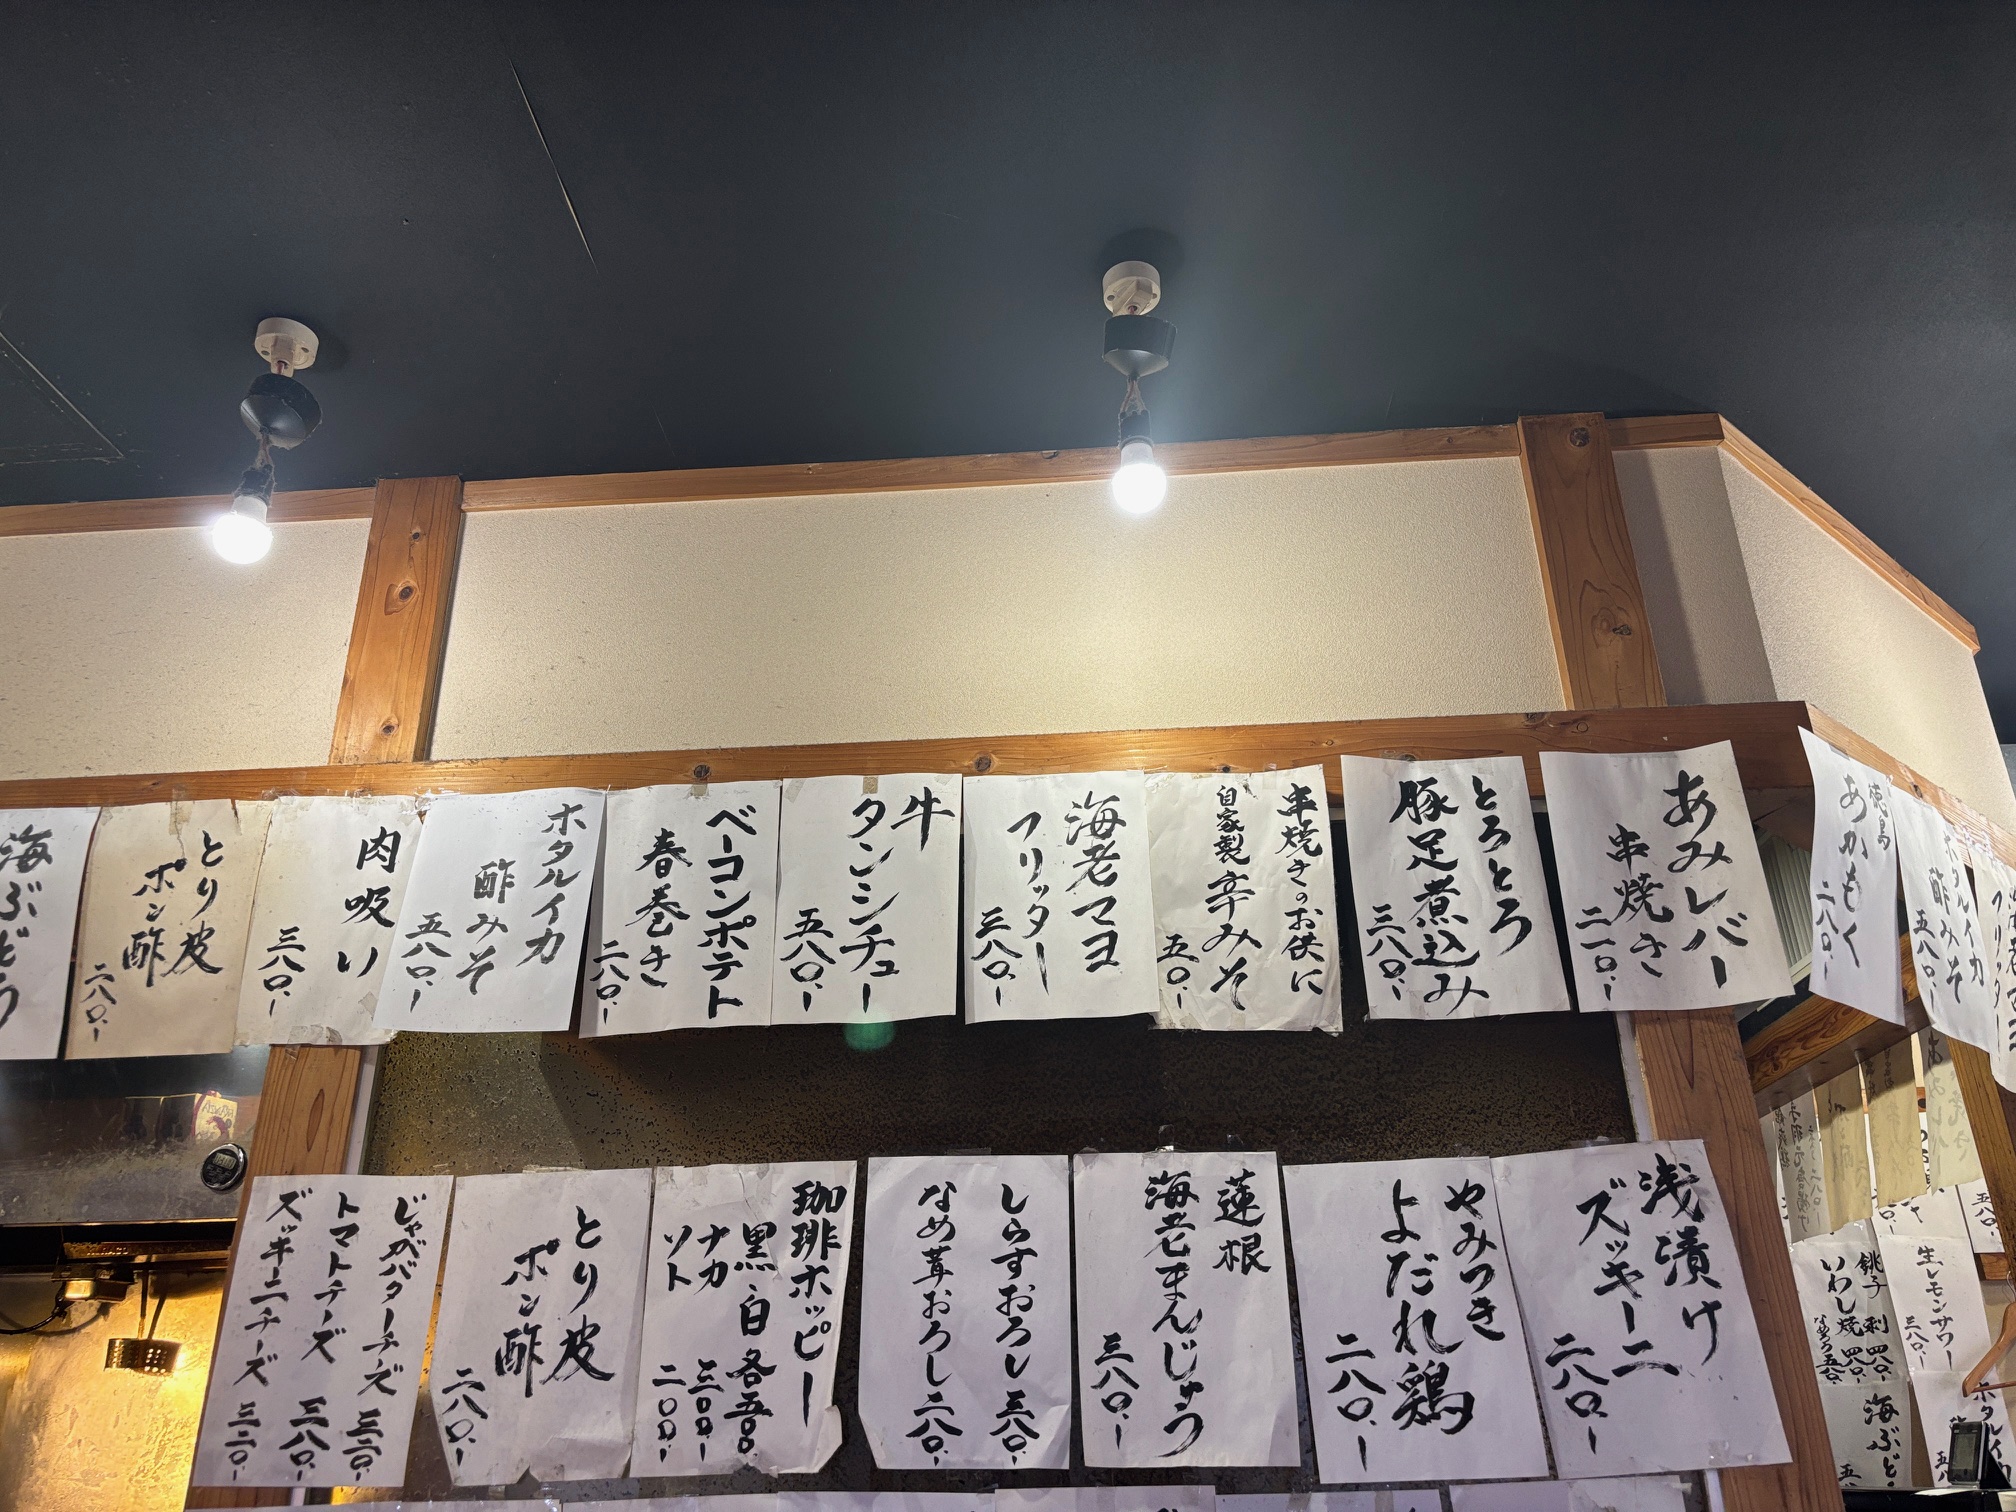 あみレバー
串焼き
二一〇.-
とろとろ
豚足煮込み
三八〇.-
串焼きのお供に
自家製辛みそ
五〇.-
海老マヨ
フリッター
三八〇.-
牛
タンシチュー
五八〇.-
ベーコンポテト
春巻き
二八〇.-
ホタルイカ
酢みそ
五八〇.-
肉吸い
三八〇.-
とり皮
ポン酢
二八〇.-
海ぶどう
浅漬け
ズッキーニ
二八〇.-
やみつき
よだれ鶏
二八〇.-
蓮根
海老まんじゅう
三八〇.-
しらすおろし 三八〇.-
なめ茸おろし 二八〇.-
珈琲ホッピー
黒・白 各五〇〇.-
ナカ 三〇〇.-
ソト 二〇〇.-
とり皮
ポン酢
二八〇.-
じゃがバターチーズ 三二〇.-
トマトチーズ 三八〇.-
ズッキーニチーズ 三二〇.-
徳島
あかもく
二八〇.-
ホタルイカ
酢みそ
五八〇.-
フリッター
生レモンサワー
三八〇.-
銚子
いわし
刺 四八〇.-
焼 四八〇.-
なめろう 五八〇.-
ホタルイカ
海ぶど